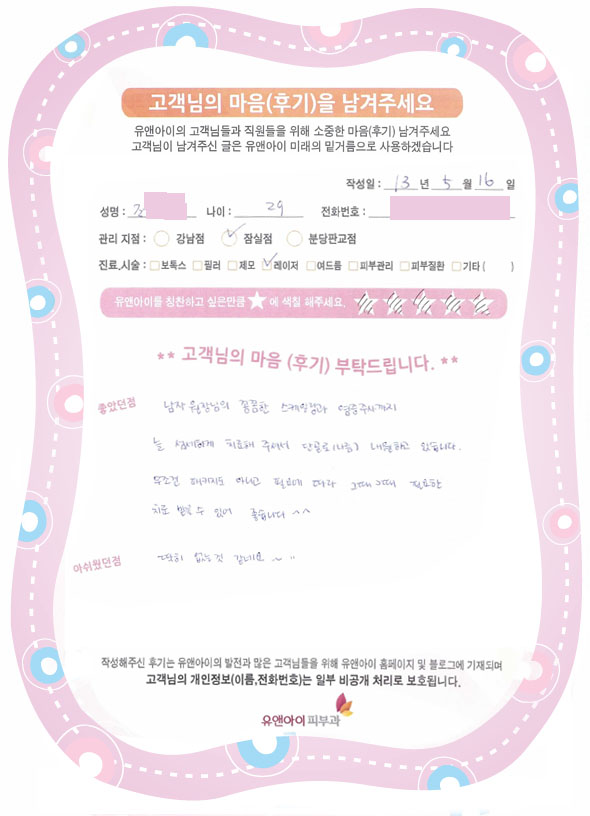 고객님의 마음(후기)을 남겨주세요
유앤아이의 고객님들과 직원들을 위해 소중한 마음(후기) 남겨주세요
고객님이 남겨주신 글은 유앤아이 미래의 밑거름으로 사용하겠습니다
작성일 : 13 년 5 월 16 일
성명 : 나이 : 29 전화번호 :
관리 지점 : 강남점 잠실점 분당판교점
진료.시술 : 보톡스 필러 제모 레이저 여드름 피부관리 피부질환 기타 ( )
유앤아이를 칭찬하고 싶은만큼 ★에 색칠 해주세요.
** 고객님의 마음 (후기) 부탁드립니다. **
좋았던점 남자 원장님의 꼼꼼한 스케일링과 염증주사까지
늘 섬세하게 치료해 주셔서 단골로(나름) 내원하고 있습니다.
무조건 패키지도 아니고 필요에 따라 그때그때 필요한
치료 받을 수 있어 좋습니다 ^^
아쉬웠던점 딱히 없는것 같네요 ~
작성해주신 후기는 유앤아이의 발전과 많은 고객님들을 위해 유앤아이 홈페이지 및 블로그에 기재되며
고객님의 개인정보(이름,전화번호)는 일부 비공개 처리로 보호됩니다.
유앤아이피부과